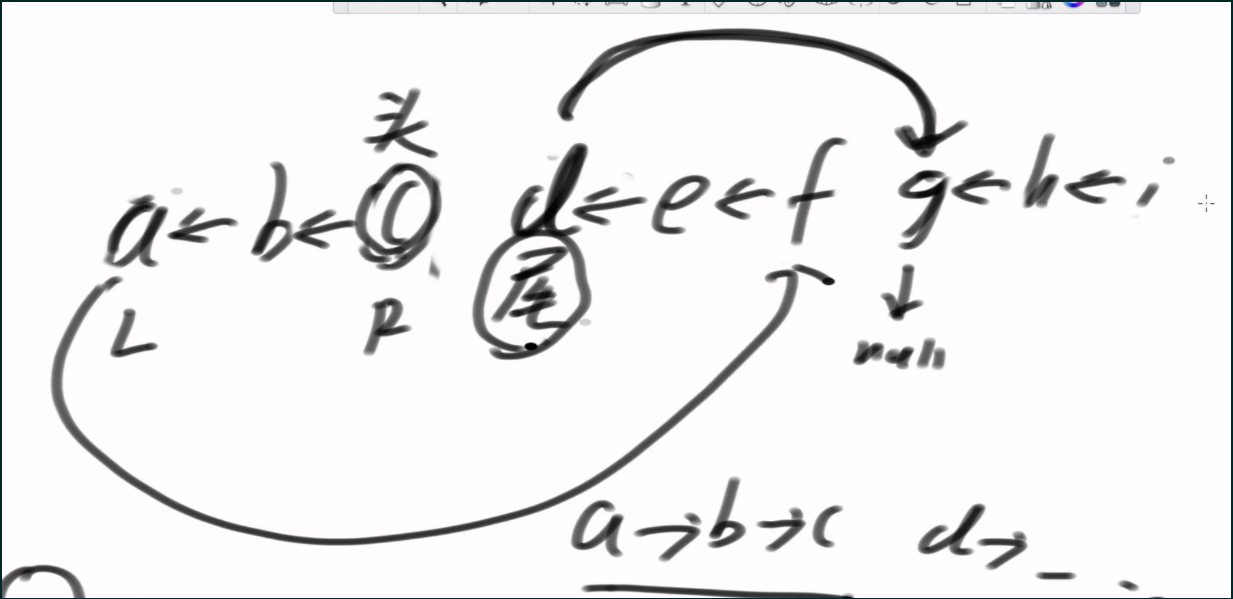 头
a←b←c d←e←f g←h←i
尾
L R
null
a→b→c d→